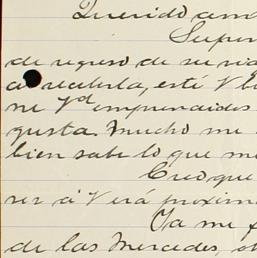 Querido am
Super
de regreso de su via
a recibirla, esté V b
ne Yd emprendidos
gusta. Mucho me a
bien sabe lo que me
Creo que
ver á V será proxim
Ya me
de las Mercedes, ot